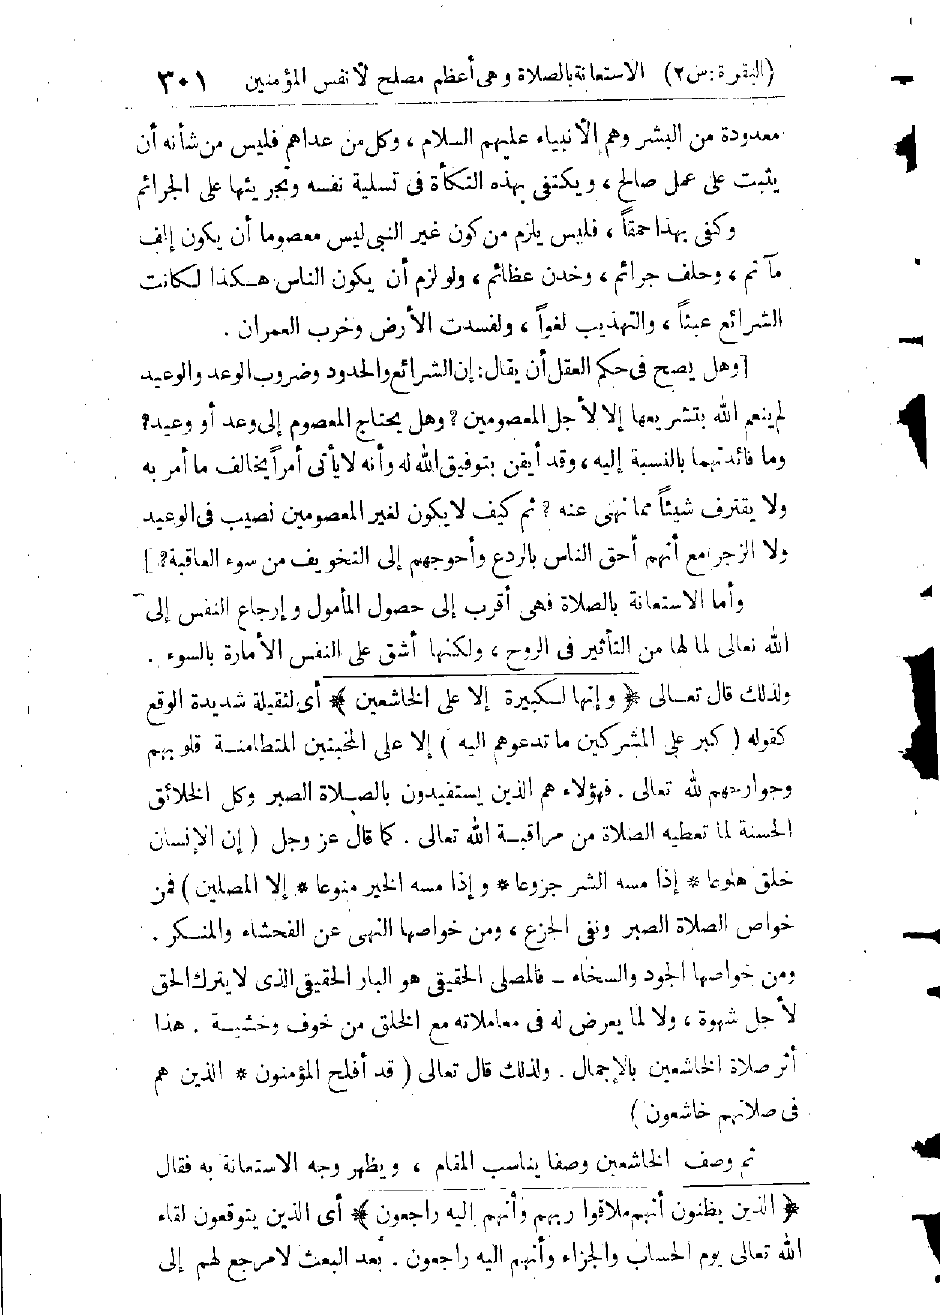 (البقرة:س٢) الاستعانة بالصلاة وهى أعظم مصلح لأنفس المؤمنين ٣٠١
معدودة من البشر وهم الأنبياء عليهم السلام ، وكل من عداهم فليس من شأنه أن
يثبت على عمل صالح ، ويكتفى بهذه التكأة فى تسلية نفسه وتجريئها على الجرائم
وكفى بهذا حمقاً ، فليس يلزم من كون غير النبى ليس معصوما أن يكون إلف
مآثم ، وحلف جرائم ، وخدن عظائم ، ولو لزم أن يكون الناس هكذا لكانت
الشرائع عبثاً ، والتهذيب لغواً ، ولفسدت الأرض وخرب العمران .
[وهل يصح فى حكم العقل أن يقال: إن الشرائع والحدود وضروب الوعد والوعيد
لم ينعم الله بتشريعها إلا لأجل المعصومين ؟ وهل يحتاج المعصوم إلى وعد أو وعيد؟
وما فائدتهما بالنسبة إليه ، وقد أيقن بتوفيق الله له وأنه لا يأتى أمراً يخالف ما أمر به
ولا يقترف شيئاً مما نهى عنه ؟ ثم كيف لا يكون لغير المعصومين نصيب فى الوعيد
ولا الزجر مع أنهم أحق الناس بالردع وأحوجهم إلى التخويف من سوء العاقبة؟]
وأما الاستعانة بالصلاة فهى أقرب إلى حصول المأمول وإرجاع النفس إلى
الله تعالى لما لها من التأثير فى الروح ، ولكنها أشق على النفس الأمارة بالسوء .
ولذلك قال تعالى ﴿ وإنها لكبيرة إلا على الخاشعين ﴾ أى لثقيلة شديدة الوقع
كقوله ( كبر على المشركين ما تدعوهم اليه ) إلا على المخبتين المتطامنة قلوبهم
وجوارحهم لله تعالى . فهؤلاء هم الذين يستفيدون بالصلاة الصبر وكل الخلائق
الحسنة لما تعطيه الصلاة من مراقبة الله تعالى . كما قال عز وجل ( إن الإنسان
خلق هلوعا * إذا مسه الشر جزوعا * وإذا مسه الخير منوعا * إلا المصلين ) فمن
خواص الصلاة الصبر ونفى الجزع ، ومن خواصها النهى عن الفحشاء والمنكر .
ومن خواصها الجود والسخاء – فالمصلى الحقيقى هو البار الحقيقى الذى لا يترك الحق
لأجل شهوة ، ولا لما يعرض له فى معاملاته مع الخلق من خوف وخشية . هذا
أثر صلاة الخاشعين بالإجمال . ولذلك قال تعالى ( قد أفلح المؤمنون * الذين هم
فى صلاتهم خاشعون )
ثم وصف الخاشعين وصفا يناسب المقام ، ويظهر وجه الاستعانة به فقال
﴿ الذين يظنون أنهم ملاقوا ربهم وأنهم إليه راجعون ﴾ أى الذين يتوقعون لقاء
الله تعالى يوم الحساب والجزاء وأنهم اليه راجعون . بعد البعث لا مرجع لهم إلى